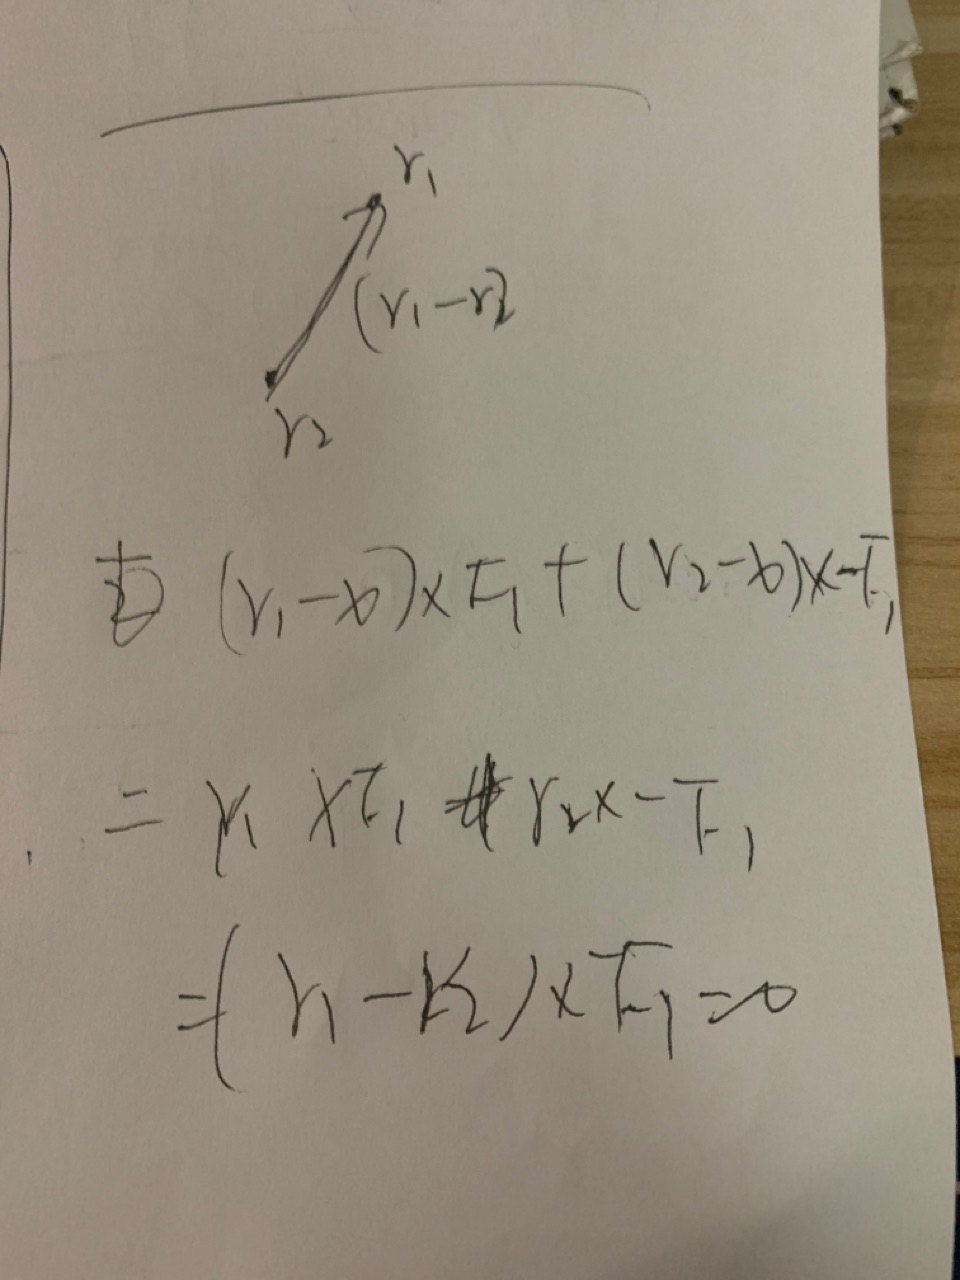 r₁
(r₁-r₂)
r₂
(r₁-b)×F₁+(r₂-b)×-F₁
= r₁ ×F₁ + r₂×-F₁
=(r₁-r₂)×F₁=0